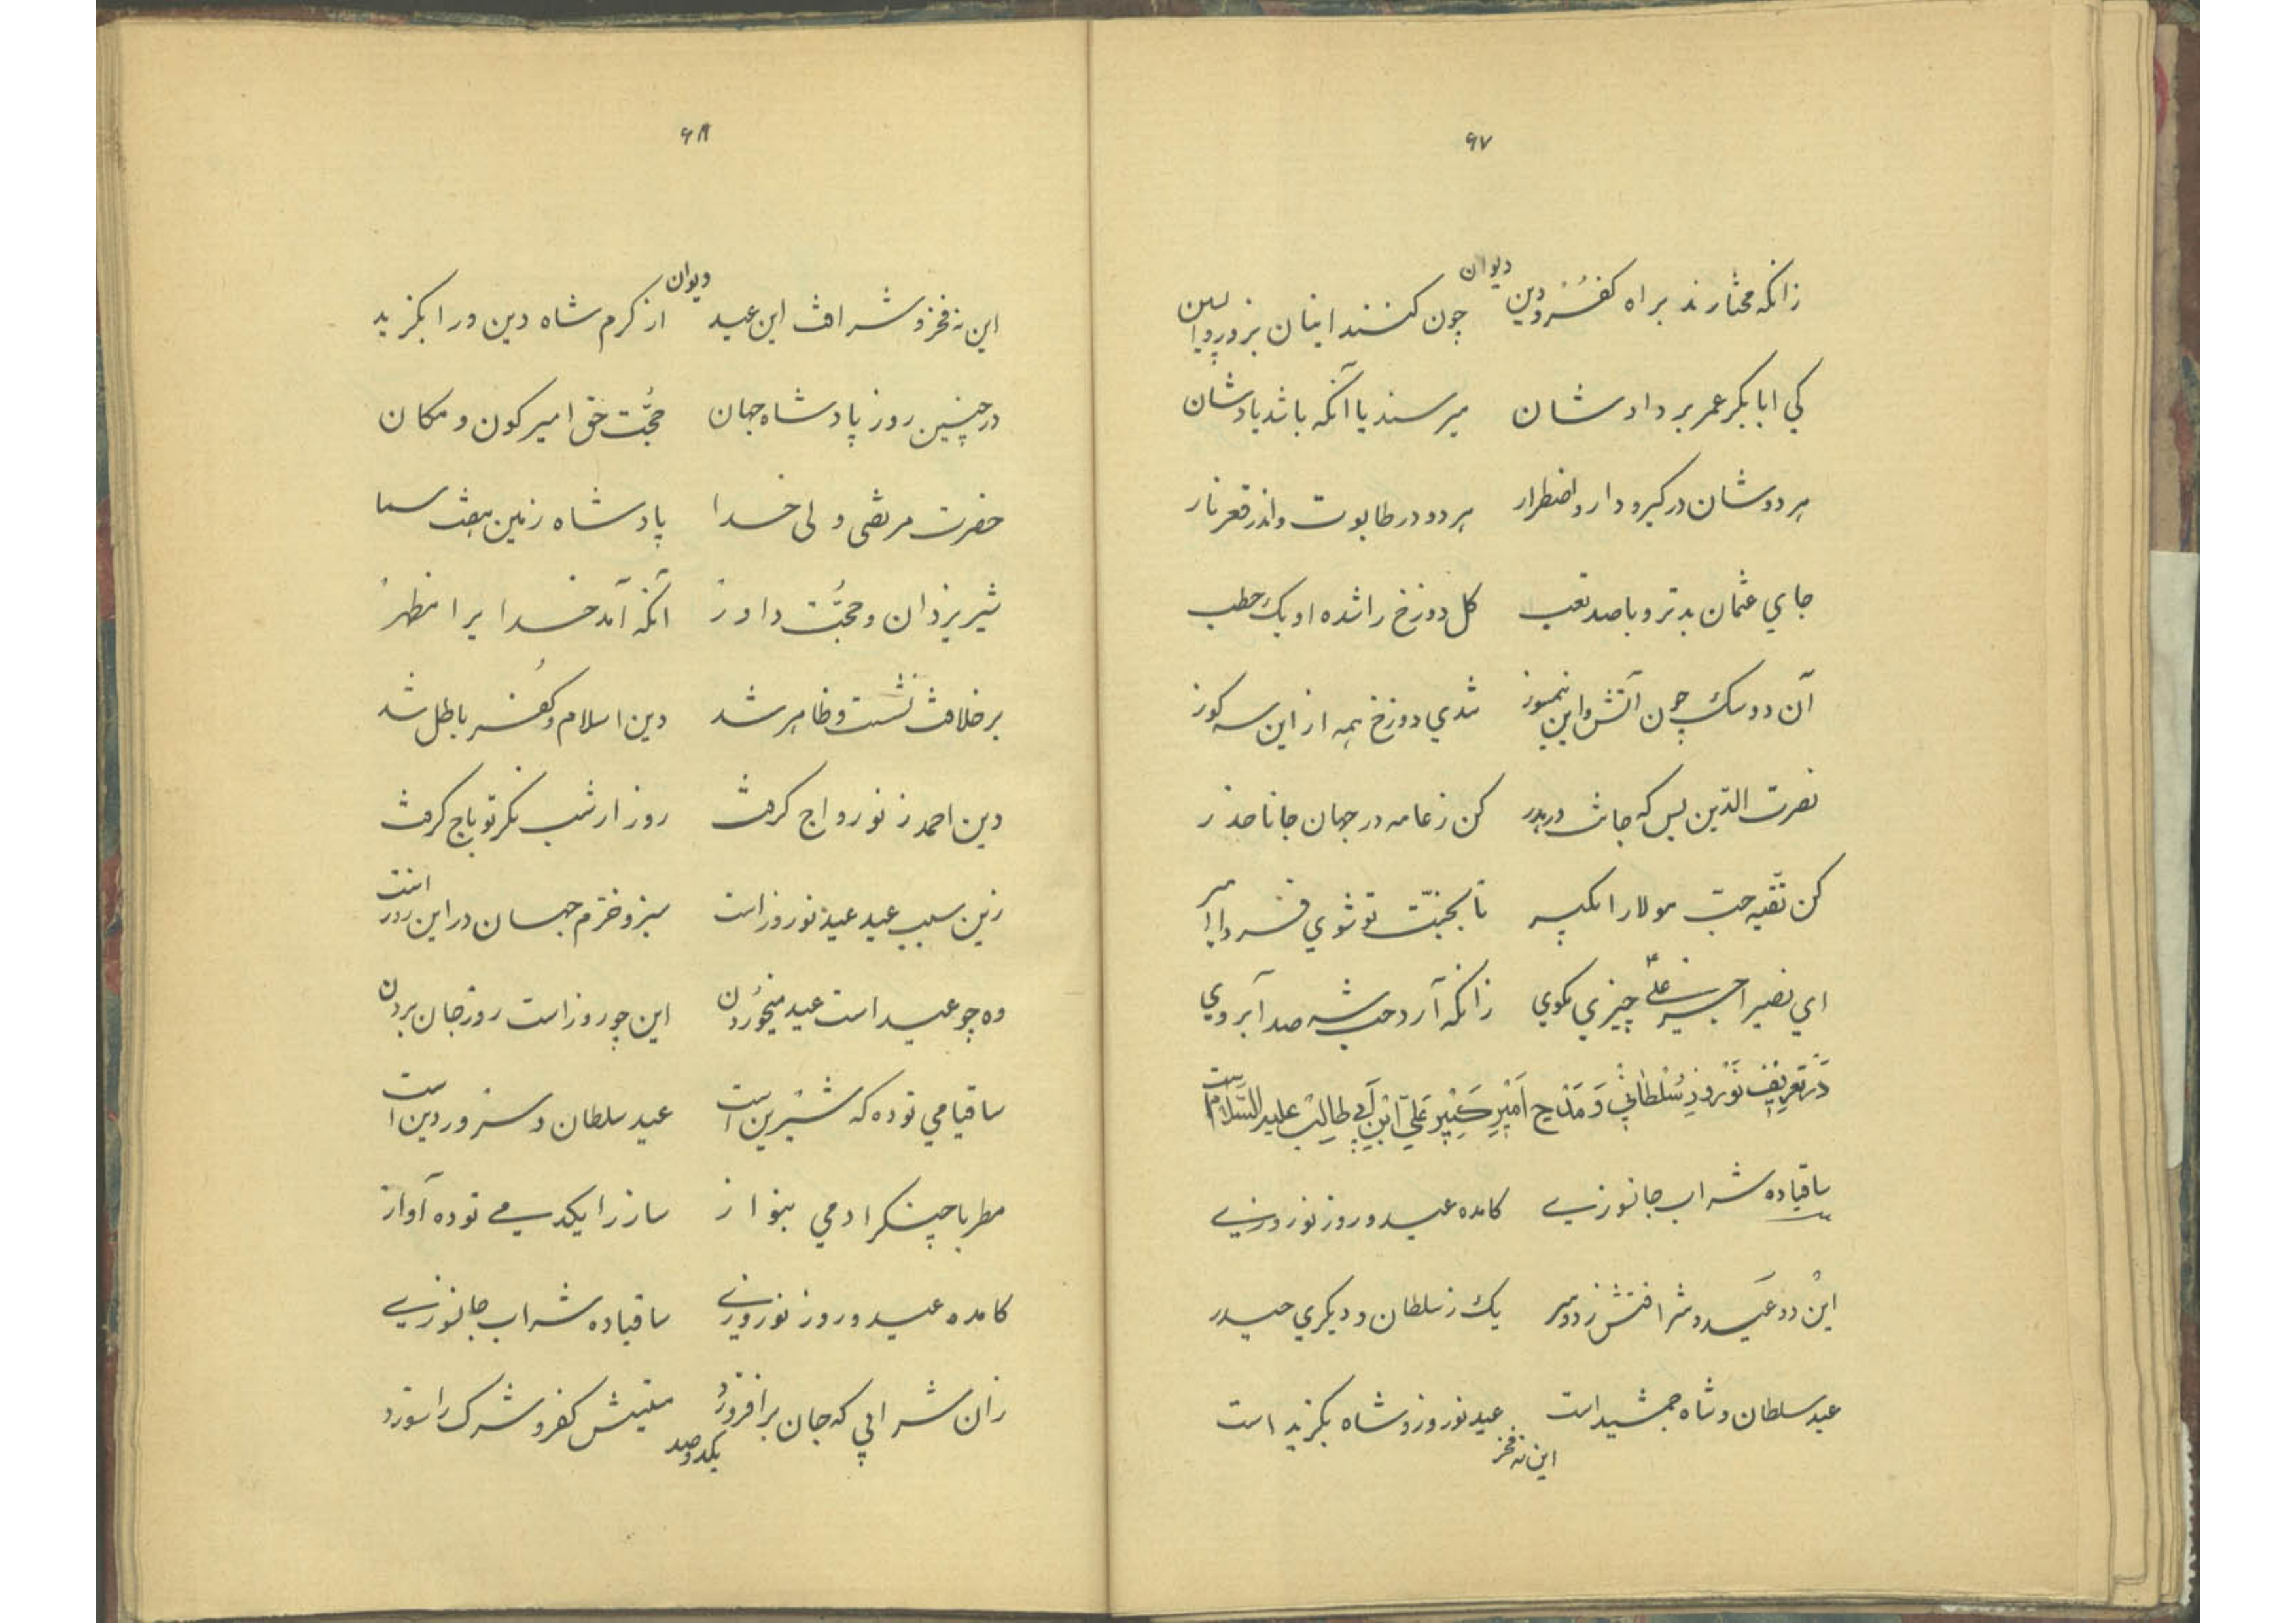 ۶۷
دیوان
زانکه مختارند براه کفر و دین چون کنند اینان بزور و
کی ابابکر عمر بر دادشان میرسند یا آنکه باشد یادشان
هر دوشان در گیرو دار و اضطرار هر دو در طابوت و اندر قعر نار
جای عثمان بدتر و با صد تعب کل دوزخ را شده او یک حطب
آن دو سک چون آتش و این نیمسوز شدی دوزخ همه از این سه کوز
نصرت الدین بس که جانت در بدر کن ز عامه در جهان جانا حذر
کن تقیه حب مولا را بکیر تا بجنت تو شوی فردا امیر
ای نصیر احب علی چیزی بکوی زانکه آرد حب شه صد آبروی
در تعریف نوروز سلطانی و مدح امیر کبیر علی ابن ابی طالب علیه السلام است
ساقیا ده شراب جانسوزی کامده عید و روز نوروزی
این دو عید و شرافتش ز دو سر یک ز سلطان و دیکری حیدر
عید سلطان و شاه جمشید است عید نوروز و شاه بکزید است
این نه فخر
۶۸
دیوان
این نه فخر و شرافت این عید از کرم شاه دین ورا بکزید
در چنین روز پادشاه جهان حجت حق امیر کون و مکان
حضرت مرتضی ولی خدا پادشاه زمین هفت سما
شیر یزدان و حجت داور آنکه آمد خدایرا مظهر
بر خلافت نشست و ظاهر شد دین اسلام و کفر باطل شد
دین احمد ز نو رواج کرفت روز از شب نکر تو باج کرفت
زین سبب عید عید نوروز است سبز و خرم جهان در این روز است
وه چو عید است عید میخوردن این چو روز است روز جان بردن
ساقیا می تو ده که شیرین است عید سلطان و سرور دین است
مطربا چنکرا دمی بنواز ساز را یکدمی تو ده آواز
کامده عید و روز نوروزی ساقیا ده شراب جانسوزی
زان شرابی که جان برافروزد کفر و شرک را سوزد
یکدو صد